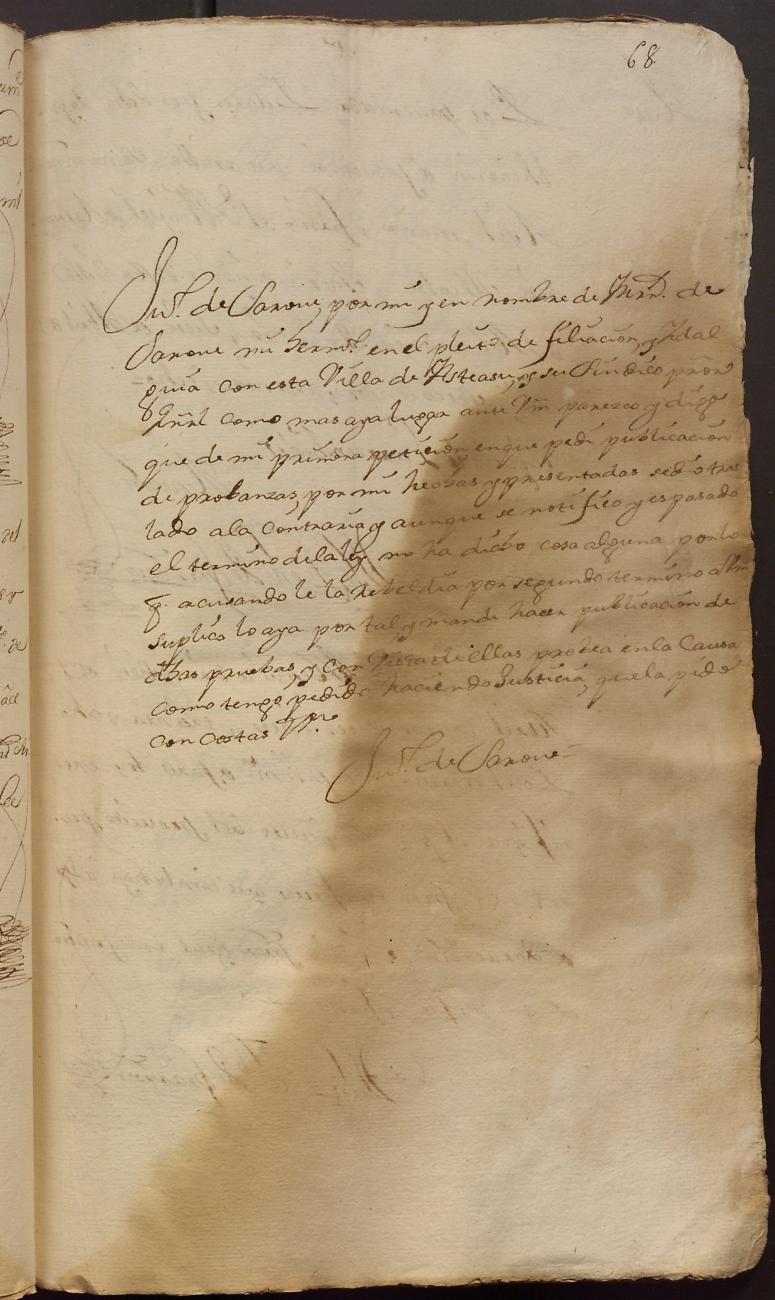 68
Juº. de Sarove, por mi y en nombre de Mrn. de
Sarove mi hermº. en el pleito de filiacion, y Hidal
guia con esta Villa de Asteasu, y su Sindico pror
Gnrl como mas aya lugar ante Vm parezco y digo
que de mi primera peticion en que pedi publicacion
de probanzas, por mi hechas y presentadas se dio tras
lado a la contraria y aunque se notifico y es pasado
el termino de la ley no ha dicho cosa alguna por lo
q. acusando le la Rebeldia por segundo termino a Vm
suplico lo aya por tal y mande hacer publicacion de
dhas pruebas, y con Vista de ellas probea en la Causa
como tengo pedido haciendo Justicia, que la pido
con costas
Juº. de Sarove